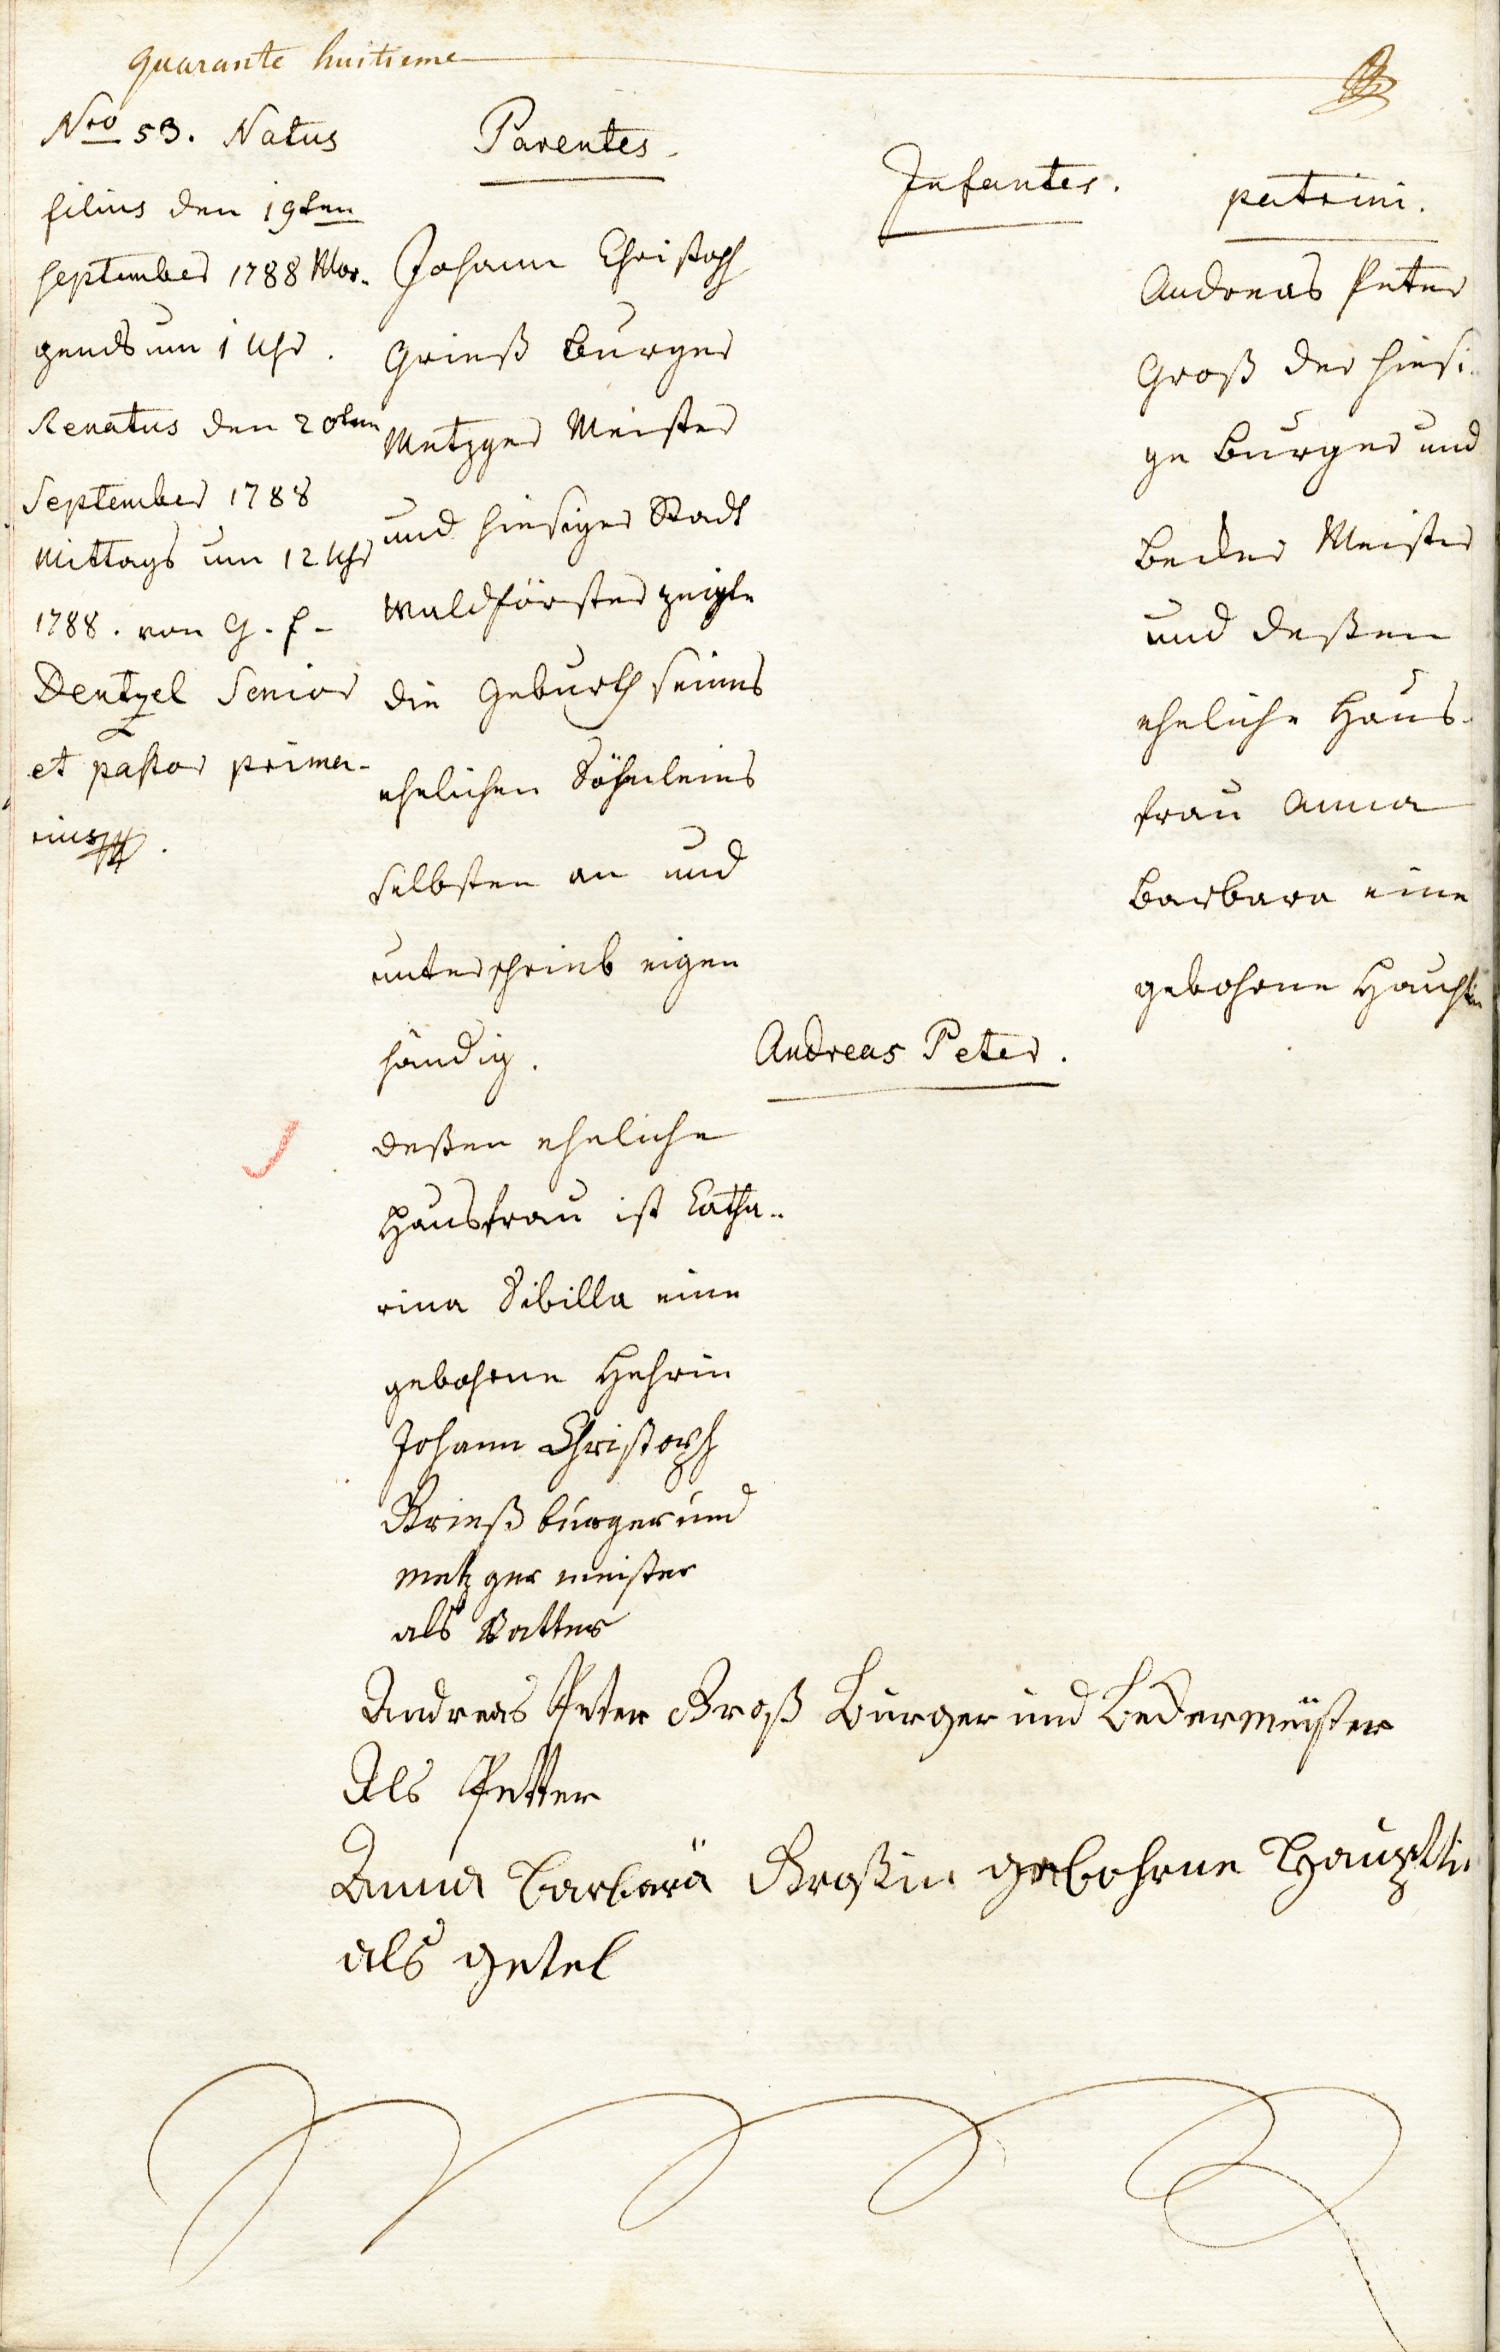 quarante huitieme
Nro 53. Natus
filius den 19ten
September 1788 Mor-
gends um 1 Uhr.
Renatus den 20ten
September 1788
Mittags um 12 Uhr
1788. von G. f.
Dentzel Senior
et pastor prima-
rius
Parentes.
Johann Christoph
Grieß Burger
Metzger Meister
und hiesiger Stadt
Waldförster zeigte
die Geburth seines
ehelichen Söhnleins
selbsten an und
unterschrieb eigen
händig.
deßen eheliche
Hausfrau ist Catha-
rina Sibilla eine
gebohrne Hehrin
Johann Christoph
Grieß burger und
metzger meister
als Vatter
Infantes.
Andreas Peter.
patrini.
Andreas Peter
Groß der hiesi-
ge Burger und
Becker Meister
und deßen
eheliche Haus-
frau Anna
Barbara eine
gebohrne
Andreas Peter Groß Burger und Beckermeister
Als Petter
Anna Barbara Großin gebohrne
als getel